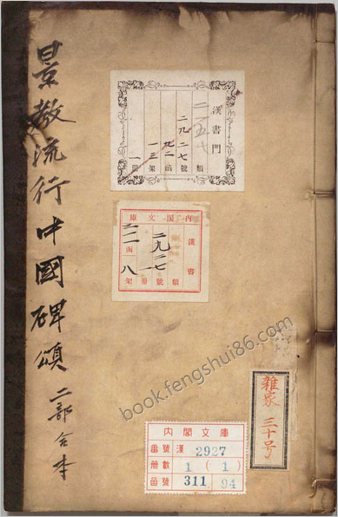 景教流行中國碑頌 二部合本
漢書門
二九二七號
一冊
內閣文庫
漢書
二九二七號
八架
雜家 三十号
內閣文庫
番號 漢 2927
冊數 1 (1)
函號 311 94
book.fengshui86.com